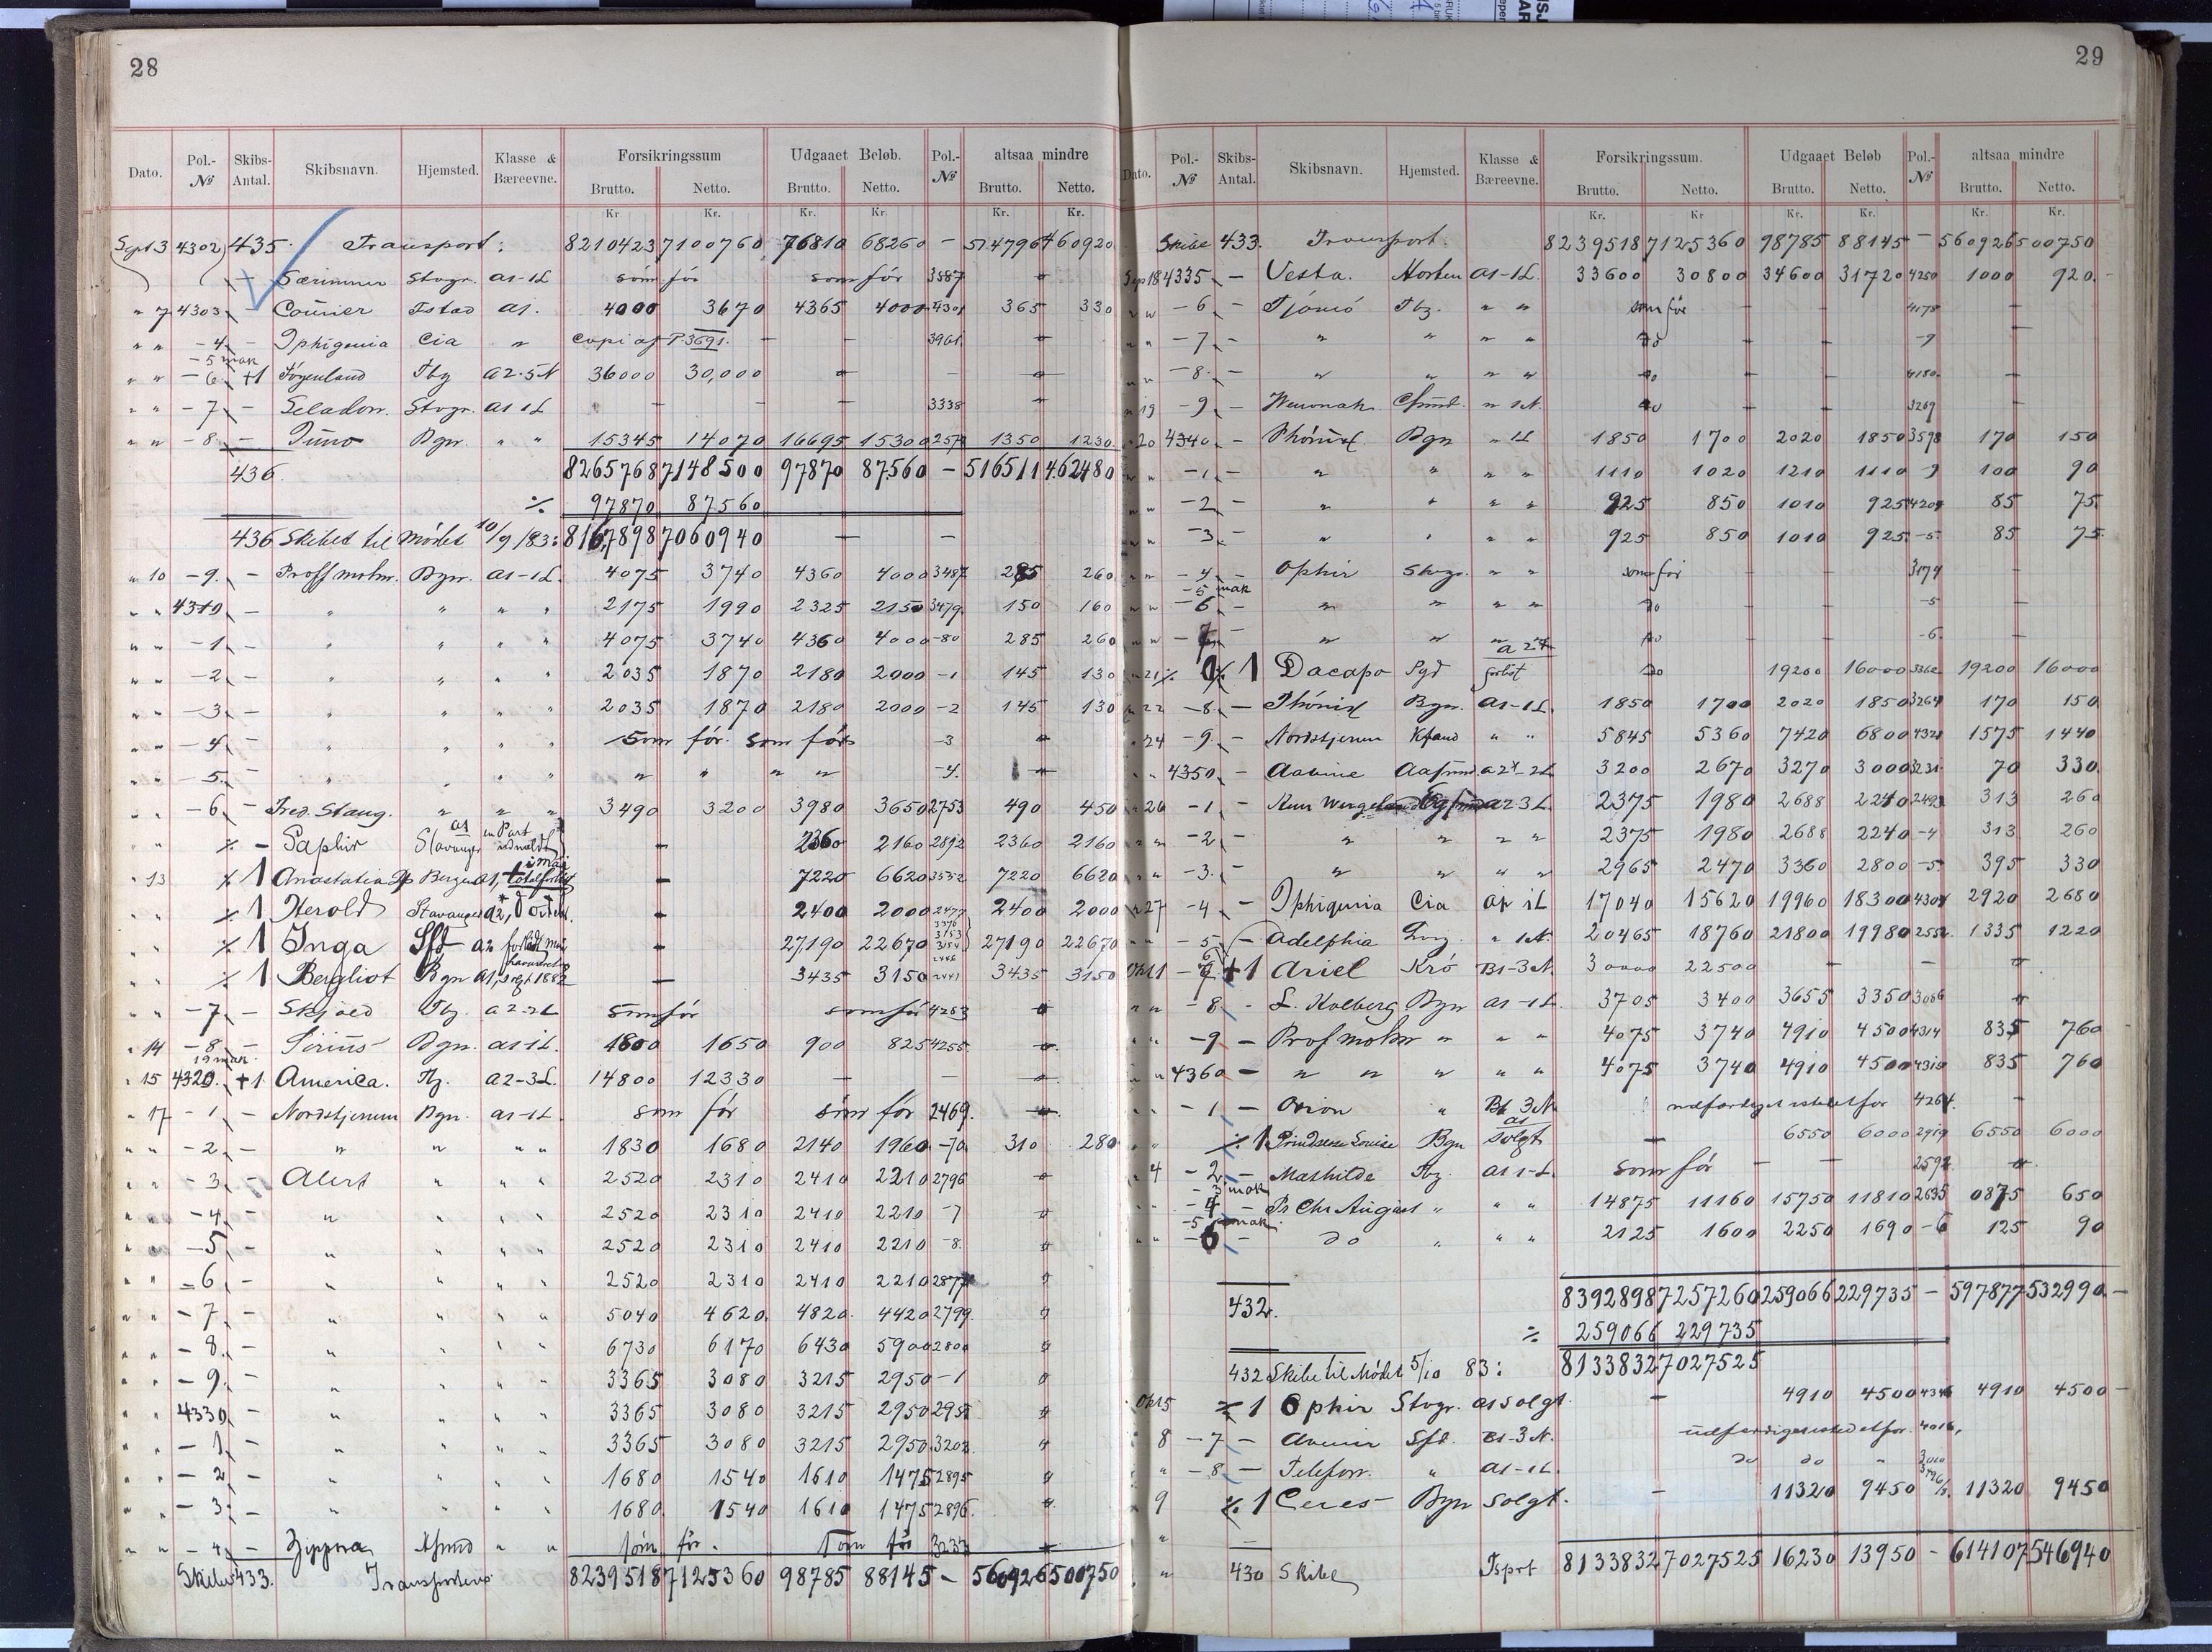 28
Dato. Pol.-№ Skibs-Antal. Skibsnavn. Hjemsted. Klasse & Bæreevne. Forsikringssum Brutto. Netto. Udgaaet Beløb. Brutto. Netto. Pol.-№ altsaa mindre Brutto. Netto.
Kr. Kr. Kr. Kr. Kr. Kr.
Sept 3 4302 435. Transport: 8210423 7100760 76810 68260 - 514796 460920
- Særimner Stvgr. a1-1L som før som før 3887
" 7 4303 - Courier Fstad a1. 4000 3670 4365 4000 4301 365 330
" " -4 - Iphigenia Cia " Copi af P. 3691. - - 3961
-5 mak
" " -6 +1 Tbg a2.5N 36000 30,000 - -
" " -7 - Seladon Stvgr. a1 1L - - - 3338
" " -8 - Juno Bgn. " " 15345 14070 16695 15300 257 1350 1230
436. 8265768 7148500 97870 87560 - 516511 462480
% 97870 87560
436 Skibet til Mødet 10/9/83: 8167898 7060940 - -
" 10 -9. - Proff mohn. Bgn. a1-1L. 4075 3740 4360 4000 3487 285 260
" " 4310. - " " " " 2175 1990 2325 2150 3479. 150 160
" " -1. - " " " " 4075 3740 4360 4000 -80 285 260
" " -2. - " " " " 2035 1870 2180 2000 -1 145 130
" " -3. - " " " " 2035 1870 2180 2000 -2 145 130
" " -4. - " " " " Som før. som før -3
" " -5. - " " " " " " " " -4.
" " -6. - Fred. Stang. " " " 3490 3200 3980 3650 2753 490 450
" " % - Saphir Stavanger a1 en Part udmeldt - 2360 2160 2892 2360 2160
" 13 % 1 Anastatia Bergen a1, totalforlist i mai - 7220 6620 3552 7220 6620
" " % 1 Herold Stavanger a2, do - 2400 2000 2477 2400 2000
" " % 1 Inga Sfd a2 - 27190 22670 27190 22670
" " % 1 Bergliot Bgn a1, 1882 - 3435 3150 2441 3435 3150
" " -7. - Skjold Tbg. a2-2L som før som før 4283
" 14 -8. - Sirius Bgn. a1 1L. 1800 1650 900 825 4255.
19 mak.
" 15 4320. +1 America. Tbg. a2-3L. 14800 12330 - -
" 17 -1. - Nordstjernen Bgn. a1-1L. som før som før 2469.
" " -2. - " " " " 1830 1680 2140 1960 -70 310 280
" " -3. - Alert " " " 2520 2310 2410 2210 2796
" " -4. - " " " " 2520 2310 2410 2210 -7
" " -5. - " " " " 2520 2310 2410 2210 -8.
" " -6. - " " " " 2520 2310 2410 2210 2877
" " -7. - " " " " 5040 4620. 4820. 4420 2799.
" " -8. - " " " " 6730 6170 6430 5900 2800
" " -9. - " " " " 3365 3080 3215 2950 -1
" " 4330. - " " " " 3365 3080 3215 2950 2951
" " -1. - " " " " 3365 3080 3215 2950 3202
" " -2. - " " " " 1680 1540 1610 1475 2895
" " -3. - " " " " 1680. 1540 1610 1475 2896.
" " -4. - Zippora " " som før. som før 3237
Skibe 433. Transporteres 8239518 7125360 98785 88145 - 560926 500750
29
Dato. Pol.-№ Skibs-Antal. Skibsnavn. Hjemsted. Klasse & Bæreevne. Forsikringssum. Brutto. Netto. Udgaaet Beløb Brutto. Netto. Pol.-№ altsaa mindre Brutto. Netto.
Kr. Kr Kr. Kr. Kr. Kr.
Skibe 433. Transport. 8239518 7125360 98785 88145 - 560926 500750
Sept 18 4335 - Vesta. Horten a1-1L. 33600 30800 34600 31720 4250 1000 920.-
" " -6 - Tjømø Tbg. " " som før - - 4178 -
" " -7 - " " " " do - - -9 -
" " -8. - " " " " do - - 4180. -
" 19 -9 - " 1N. do - - 3269 -
" 20 4340 - Phønix. Bgn " 1L 1850 1700 2020 1850 3598 170 150
" " -1 - " " " " 1110 1020 1210 1110 -9 100 90
" " -2 - " " " " 925 850 1010 925 4209 85 75.
" " -3 - " " " " 925 850 1010 925. -5. 85 75.
" " -4 - Ophir Stvgr. " " som før - - 3174 -
-5 mak
" " -6 - " " " " do - - -5 -
" " -7 - " " " " do - - -6. -
" 21 % 1 Dacapo Sgd a2 forlist do 19200 16000 3362 19200 16000
" 22 -8. - Phønix Bgn. a1-1L. 1850 1700 2020 1850 3264 170 150
" 24 -9. - Nordstjernen " " 5845 5360 7420 6800 4321 1575 1440
" " 4350. - a2-2L 3200 2670 3270 3000 3231. 70 330.
" 26 -1 - Henr Wergeland a2-3L 2375 1980 2688 2240 2493 313 260
" " -2 - " " " " 2375 1980 2688 2240 -4 313 260
" " -3. - " " " " 2965 2470 3360 2800 -5. 395 330
" 27 -4 - Iphigenia Cia a1 1L 17040 15620 19960 18300 4304 2920 2680
" " -5 - Adelphia " 1N. 20465 18760 21800 19980 2552. 1335 1220
Okt 1 -7 +1 Ariel Krø B1-3N. 30000 22500 - -
" " -8 - L. Holberg Bgn a1-1L. 3705 3400 3655 3350 3086
" " -9 - Prof mohn " " " 4075 3740 4910 4500 4314 835 760
" " 4360 - " " " " " 4075 3740 4910 4500 4315 835 760
" " -1 - Orion " B1 3N udfærdiget istedetfor 4264. -
" " % 1 Prindsesse Louise Bgn a1 solgt - 6550 6000 2919 6550 6000
" 4 -2 - Mathilde Tbg. a1 1L. som før - - 2592.
-3 mak
" " -4 - Pr Chr August " " " 14875 11160 15750 11810 2635 0875 650
-5 mak
" " -6 - do " " " 2125 1600 2250 1690 -6 125 90
432. 8392898 7257260 259066 229735 - 597877 532990.-
% 259066 229735
432 Skibe til Mødet 5/10 83: 8133832 7027525
Okt 5 % 1 Ophir Stvgr. a1 solgt. - 4910 4500 4346 4910 4500 -
8 -7 - Avenir Sfd. B1-3N. udfærdiget istedetfor. 4016,
" -8. - Telefon. " a1-1L. do do "
9 % 1 Ceres Bgn solgt. - 11320 9450 11320 9450
" -
" 430 Skibe Tsprt 8133832 7027525 16230 13950 - 614107 546940